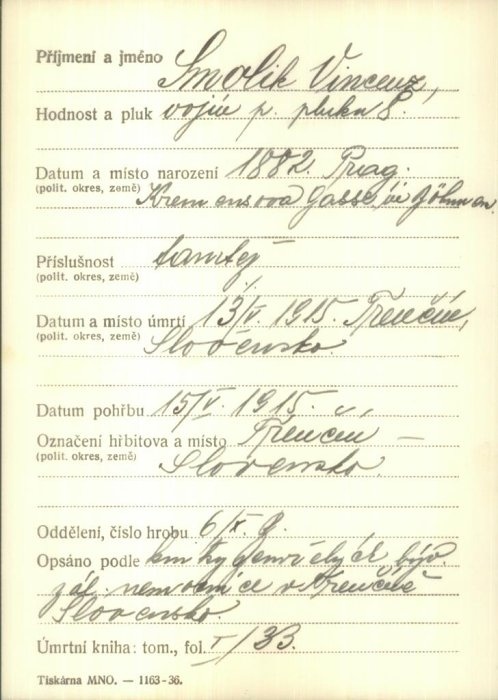 Příjmení a jméno Smolik Vincenz,
Hodnost a pluk vojín p. pluku 8.
Datum a místo narození 1882. Prag.
(polit. okres, země) Kremensova Gasse, in Böhmen.
Příslušnost tamtéž
(polit. okres, země)
Datum a místo úmrtí 13/V. 1915. Trenčín,
(polit. okres, země) Slovensko.
Datum pohřbu 15/V. 1915.
Označení hřbitova a místo Trenčín –
(polit. okres, země) Slovensko.
Oddělení, číslo hrobu 6/X. 9.
Opsáno podle knihy zemřelých býv.
zál. nemocnice v Trenčíně
Slovensko.
Úmrtní kniha: tom., fol. I/33.
Tiskárna MNO. — 1163-36.